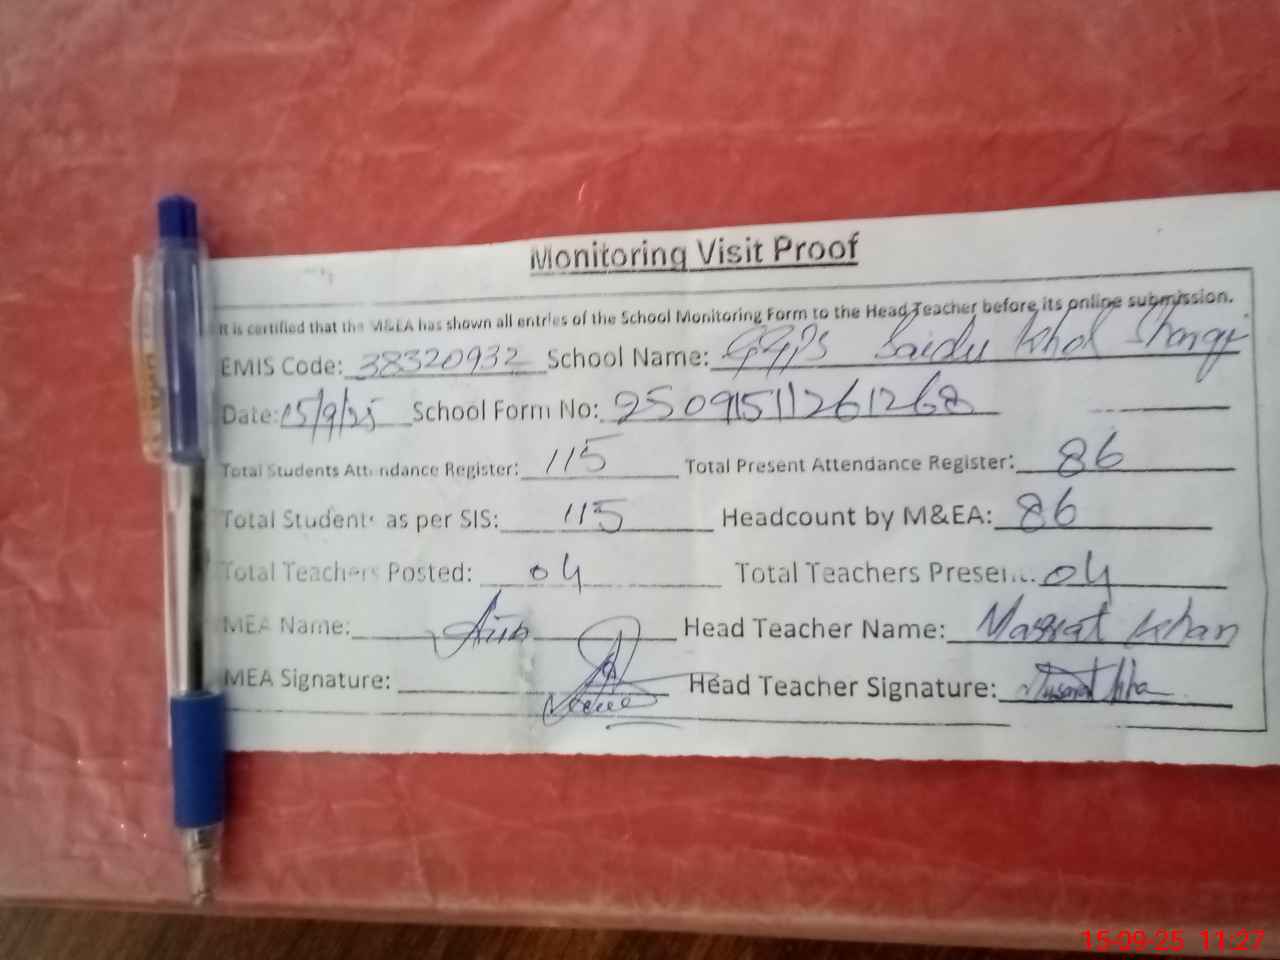 Monitoring Visit Proof
It is certified that the M&EA has shown all entries of the School Monitoring Form to the Head Teacher before its online submission.
EMIS Code: 38320932 School Name: GGPS Saidu Khel Sharqi
Date: 15/9/25 School Form No: 25091511261268
Total Students Attendance Register: 115 Total Present Attendance Register: 86
Total Students as per SIS: 115 Headcount by M&EA: 86
Total Teachers Posted: 04 Total Teachers Present: 04
MEA Name: Head Teacher Name: Massrat Khan
MEA Signature: Head Teacher Signature:
15-09-25 11:27